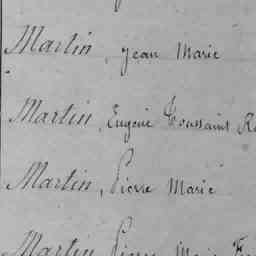 Martin, Jean Marie
Martin, Eugène Toussaint
Martin, Pierre Marie
Martin, Pierre Marie